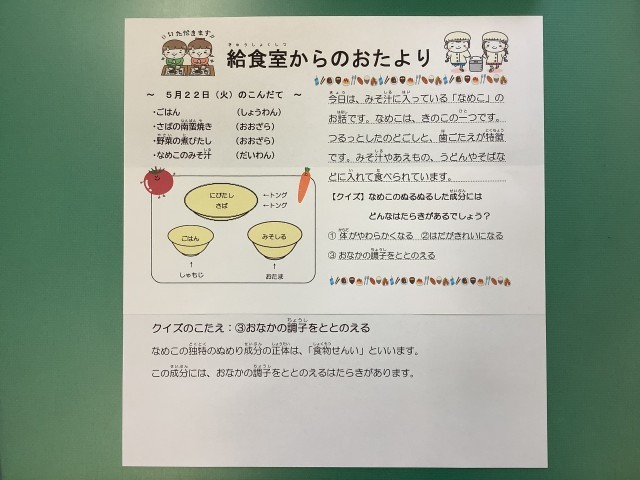 いただきます!!
給食室からのおたより
～ 5月22日（火）のこんだて ～
・ごはん （しょうわん）
・さばの南蛮焼き （おおざら）
・野菜の煮びたし （おおざら）
・なめこのみそ汁 （だいわん）
にびたし ←トング
さば ←トング
ごはん みそしる
↑ ↑
しゃもじ おたま
今日は、みそ汁に入っている「なめこ」の
お話です。なめこは、きのこの一つです。
つるっとしたのどごしと、歯ごたえが特徴
です。みそ汁やあえもの、うどんやそばな
どに入れて食べられています。
【クイズ】なめこのぬるぬるした成分には
どんなはたらきがあるでしょう？
① 体がやわらかくなる ②はだがきれいになる
③ おなかの調子をととのえる
クイズのこたえ：③おなかの調子をととのえる
なめこの独特のぬめり成分の正体は、「食物せんい」といいます。
この成分には、おなかの調子をととのえるはたらきがあります。